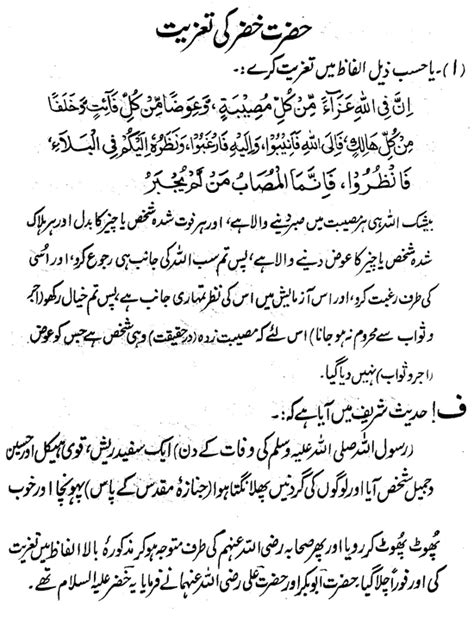 حضرت خضر کی تعزیت
(۱)۔ یا حسب ذیل الفاظ میں تعزیت کرے :۔
اِنَّ فِی اللهِ عَزَآءً مِّنْ کُلِّ مُصِیْبَةٍ، وَعِوَضًا مِّنْ کُلِّ فَآئِتٍ وَّخَلَفًا
مِنْ کُلِّ هَالِكٍ، فَاِلَی اللهِ فَاَنِیْبُوْا، وَاِلَیْهِ فَارْغَبُوْا، وَنَظَرُهٗ اِلَیْکُمْ فِی الْبَلَآءِ،
فَانْظُرُوْا، فَاِنَّمَا الْمُصَابُ مَنْ لَّمْ یُجْبَرْ
بیشک اللہ ہی ہر مصیبت میں صبر دینے والا ہے، اور ہر فوت شدہ شخص یا چیز کا بدل اور ہر ہلاک
شدہ شخص یا چیز کا عوض دینے والا ہے، پس تم سب اللہ کی جانب ہی رجوع کرو، اور اسی
کی طرف رغبت کرو، اور اس آزمایش میں اس کی نظر تمہاری جانب ہے، پس تم خیال رکھو (اجر
و ثواب سے محروم نہ ہو جانا) اس لئے کہ مصیبت زدہ (در حقیقت) وہی شخص ہے جس کو عوض
(اجر و ثواب) نہیں دیا گیا۔
ف! حدیث شریف میں آیا ہے کہ :۔
(رسول اللہ صلی اللہ علیہ وسلم کی وفات کے دن) ایک سفید ریش، قوی ہیکل اور حسین
و جمیل شخص آیا اور لوگوں کی گردنیں پھلانگتا ہوا (جنازۂ مقدس کے پاس) پہونچا اور خوب
پھوٹ پھوٹ کر رویا اور پھر صحابہ رضی اللہ عنہم کی طرف متوجہ ہو کر مذکورۂ بالا الفاظ میں تعزیت
کی اور فوراً چلا گیا، حضرت ابوبکر اور حضرت علی رضی اللہ عنہما نے فرمایا یہ خضر علیہ السلام تھے۔